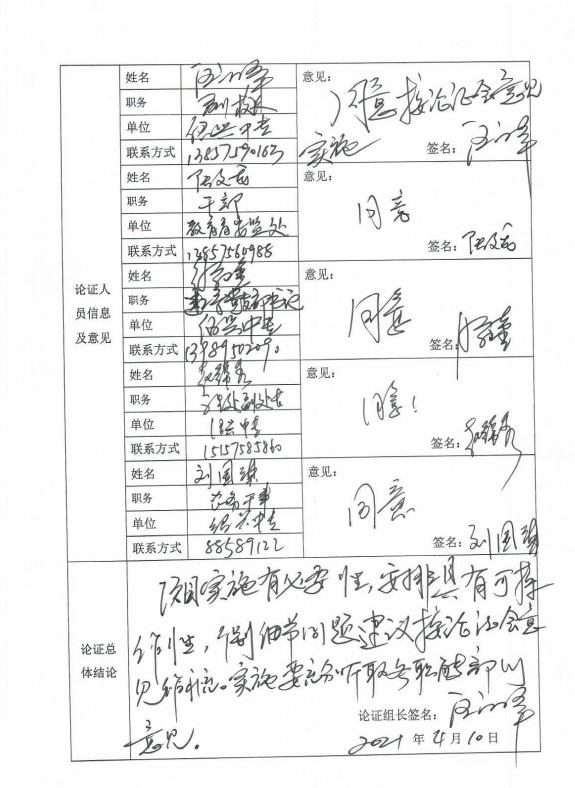 论证人
员信息
及意见
姓名
职务 副校长
单位 绍兴中专
联系方式 13857590163
意见:
同意按论证会意见
实施 签名:
姓名
职务 干部
单位 教育局安监处
联系方式 13857560988
意见:
同意
签名:
姓名
职务
单位 绍兴中专
联系方式
意见:
同意
签名:
姓名
职务
单位 绍兴中专
联系方式 15157585860
意见:
同意!
签名:
姓名 刘国瑞
职务
单位 绍兴中专
联系方式 88589122
意见:
同意
签名: 刘国瑞
论证总
体结论
项目实施有必要性,安排具有可操
作性,个别细节问题建议按论证会意
见作补充。实施要充分听取各职能部门
意见。
论证组长签名:
2021 年 4 月 10 日